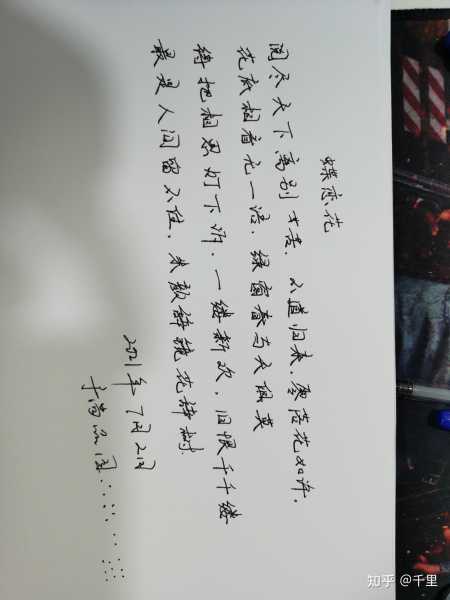 蝶恋花
阅尽天下离别苦.不道归来.零落花如许.
花底相看无一语.绿窗春与天俱莫
待把相思灯下诉.一缕新欢.旧恨千千缕
最是人间留不住.朱颜辞镜花辞树.
2021年7月2日
知乎 @千里